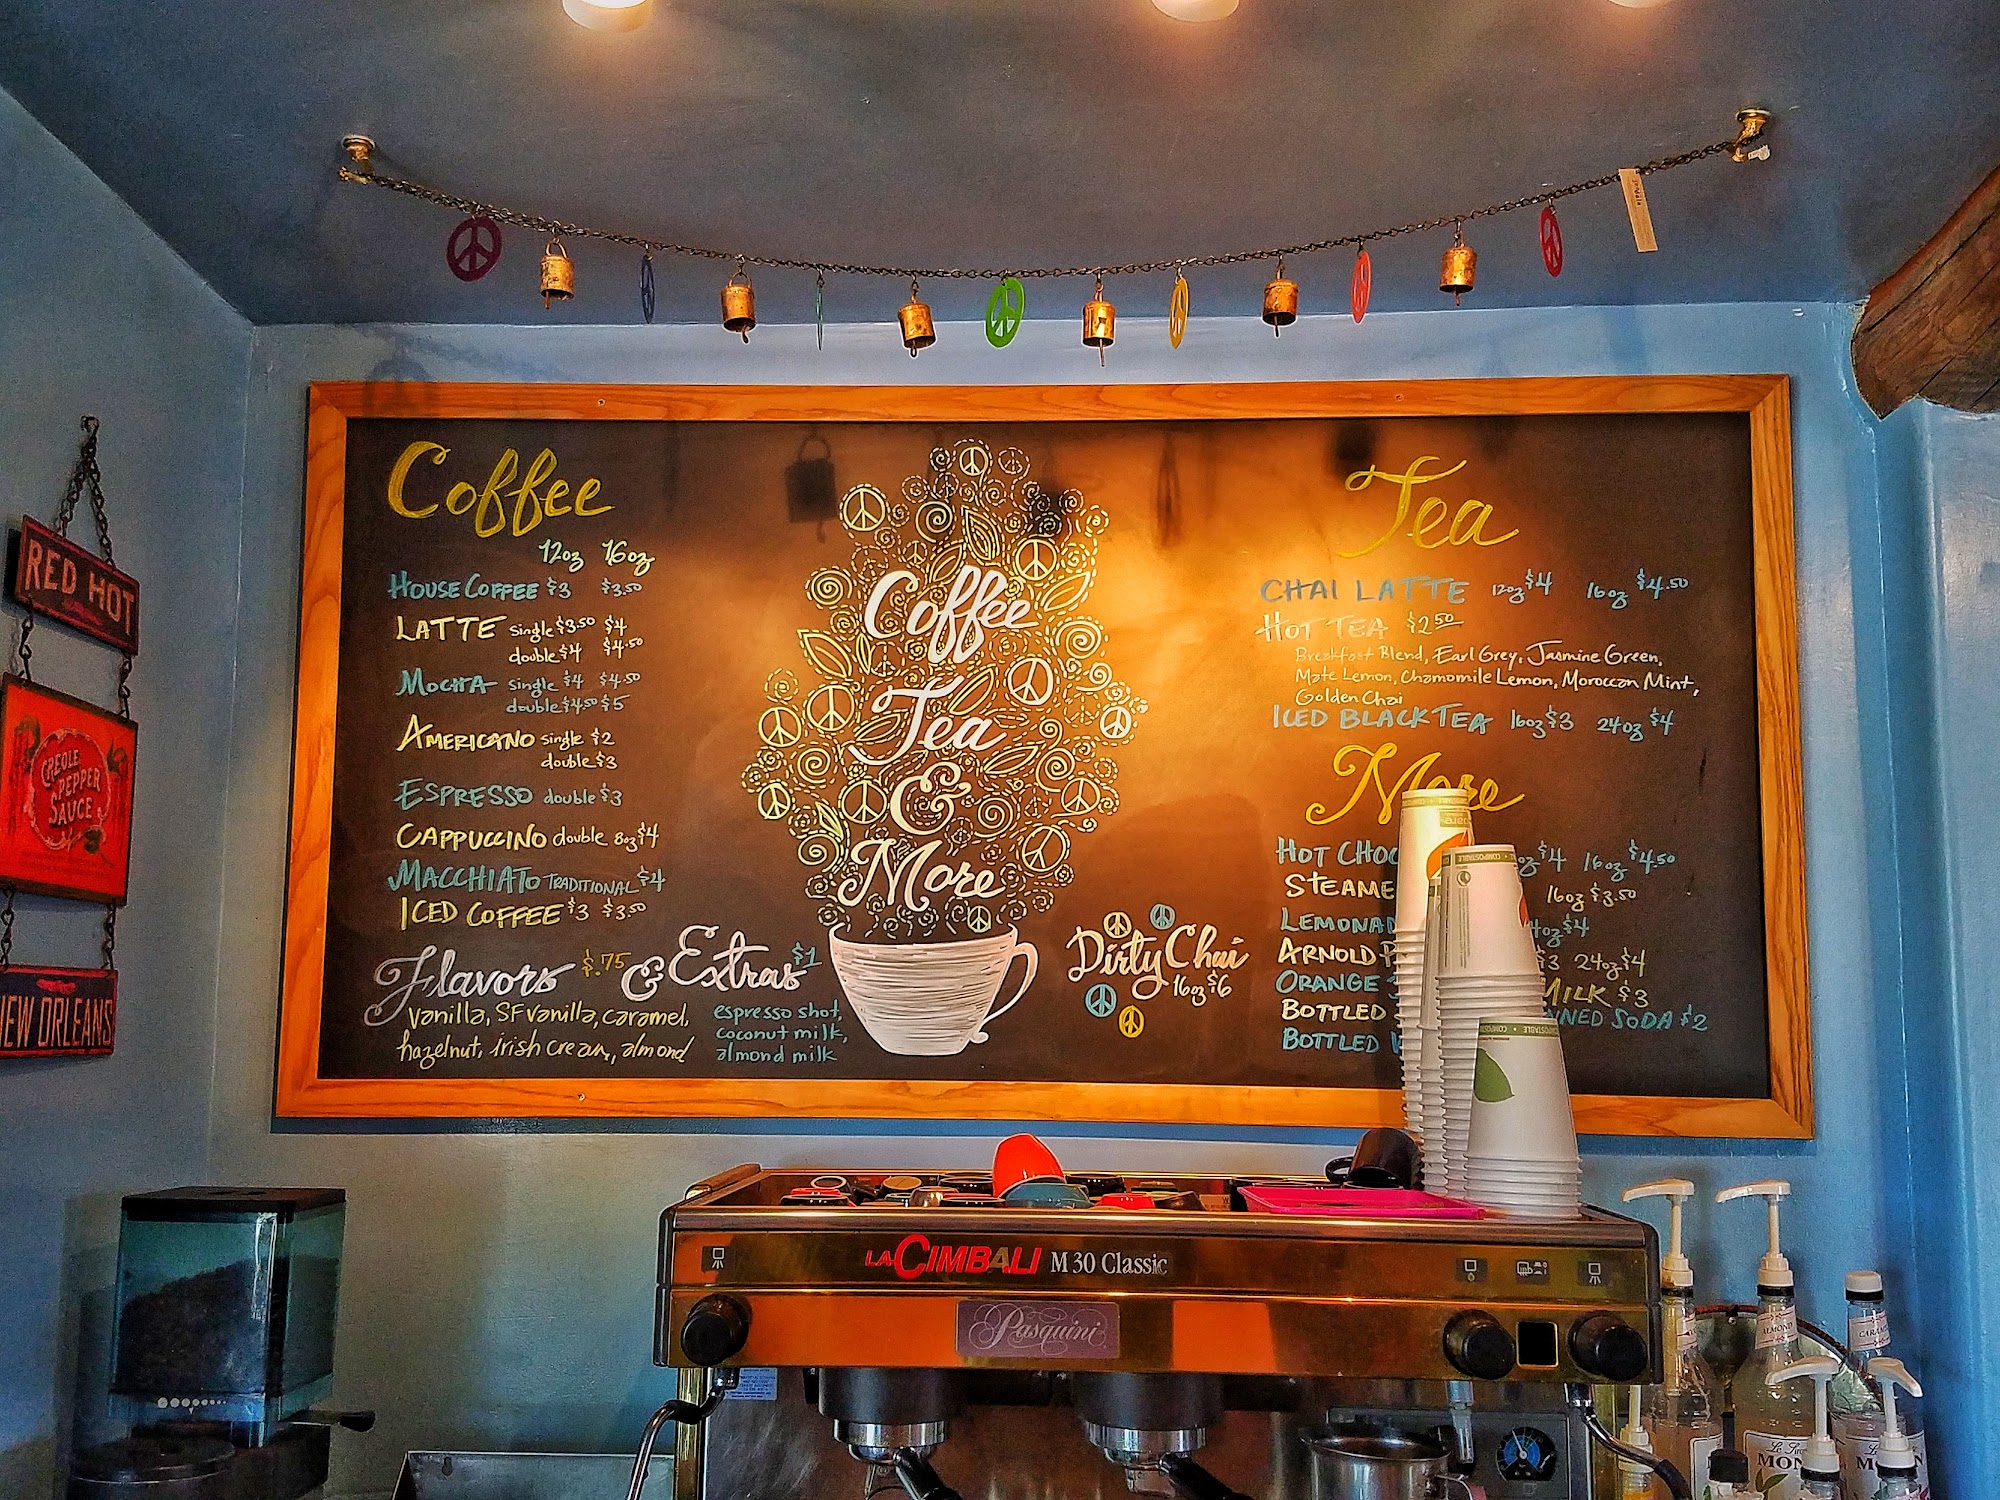 RED HOT
CREOLE
PEPPER
SAUCE
NEW ORLEANS
Coffee
12oz 16oz
HOUSE COFFEE $3 $3.50
LATTE single $3.50 $4
double $4 $4.50
MOCHA single $4 $4.50
double $4.50 $5
AMERICANO single $2
double $3
ESPRESSO double $3
CAPPUCCINO double 8oz $4
MACCHIATO TRADITIONAL $4
ICED COFFEE $3 $3.50
Flavors $.75 & Extras $1
Vanilla, SF vanilla, caramel,
hazelnut, irish cream, almond
espresso shot,
coconut milk,
almond milk
Coffee
Tea
&
More
Dirty Chai
16oz $6
Tea
CHAI LATTE 12oz $4 16oz $4.50
HOT TEA $2.50
Breakfast Blend, Earl Grey, Jasmine Green,
Mate Lemon, Chamomile Lemon, Moroccan Mint,
Golden Chai
ICED BLACK TEA 16oz $3 24oz $4
More
HOT CHOC oz $4 16oz $4.50
STEAME 16oz $3.50
LEMONAD 4oz $4
ARNOLD P $3 24oz $4
ORANGE MILK $3
BOTTLED NNED SODA $2
BOTTLED
COMPOSTABLE
COMPOSTABLE
LA CIMBALI M 30 Classic
Pasquini
ALMOND
CARAM
MON
M